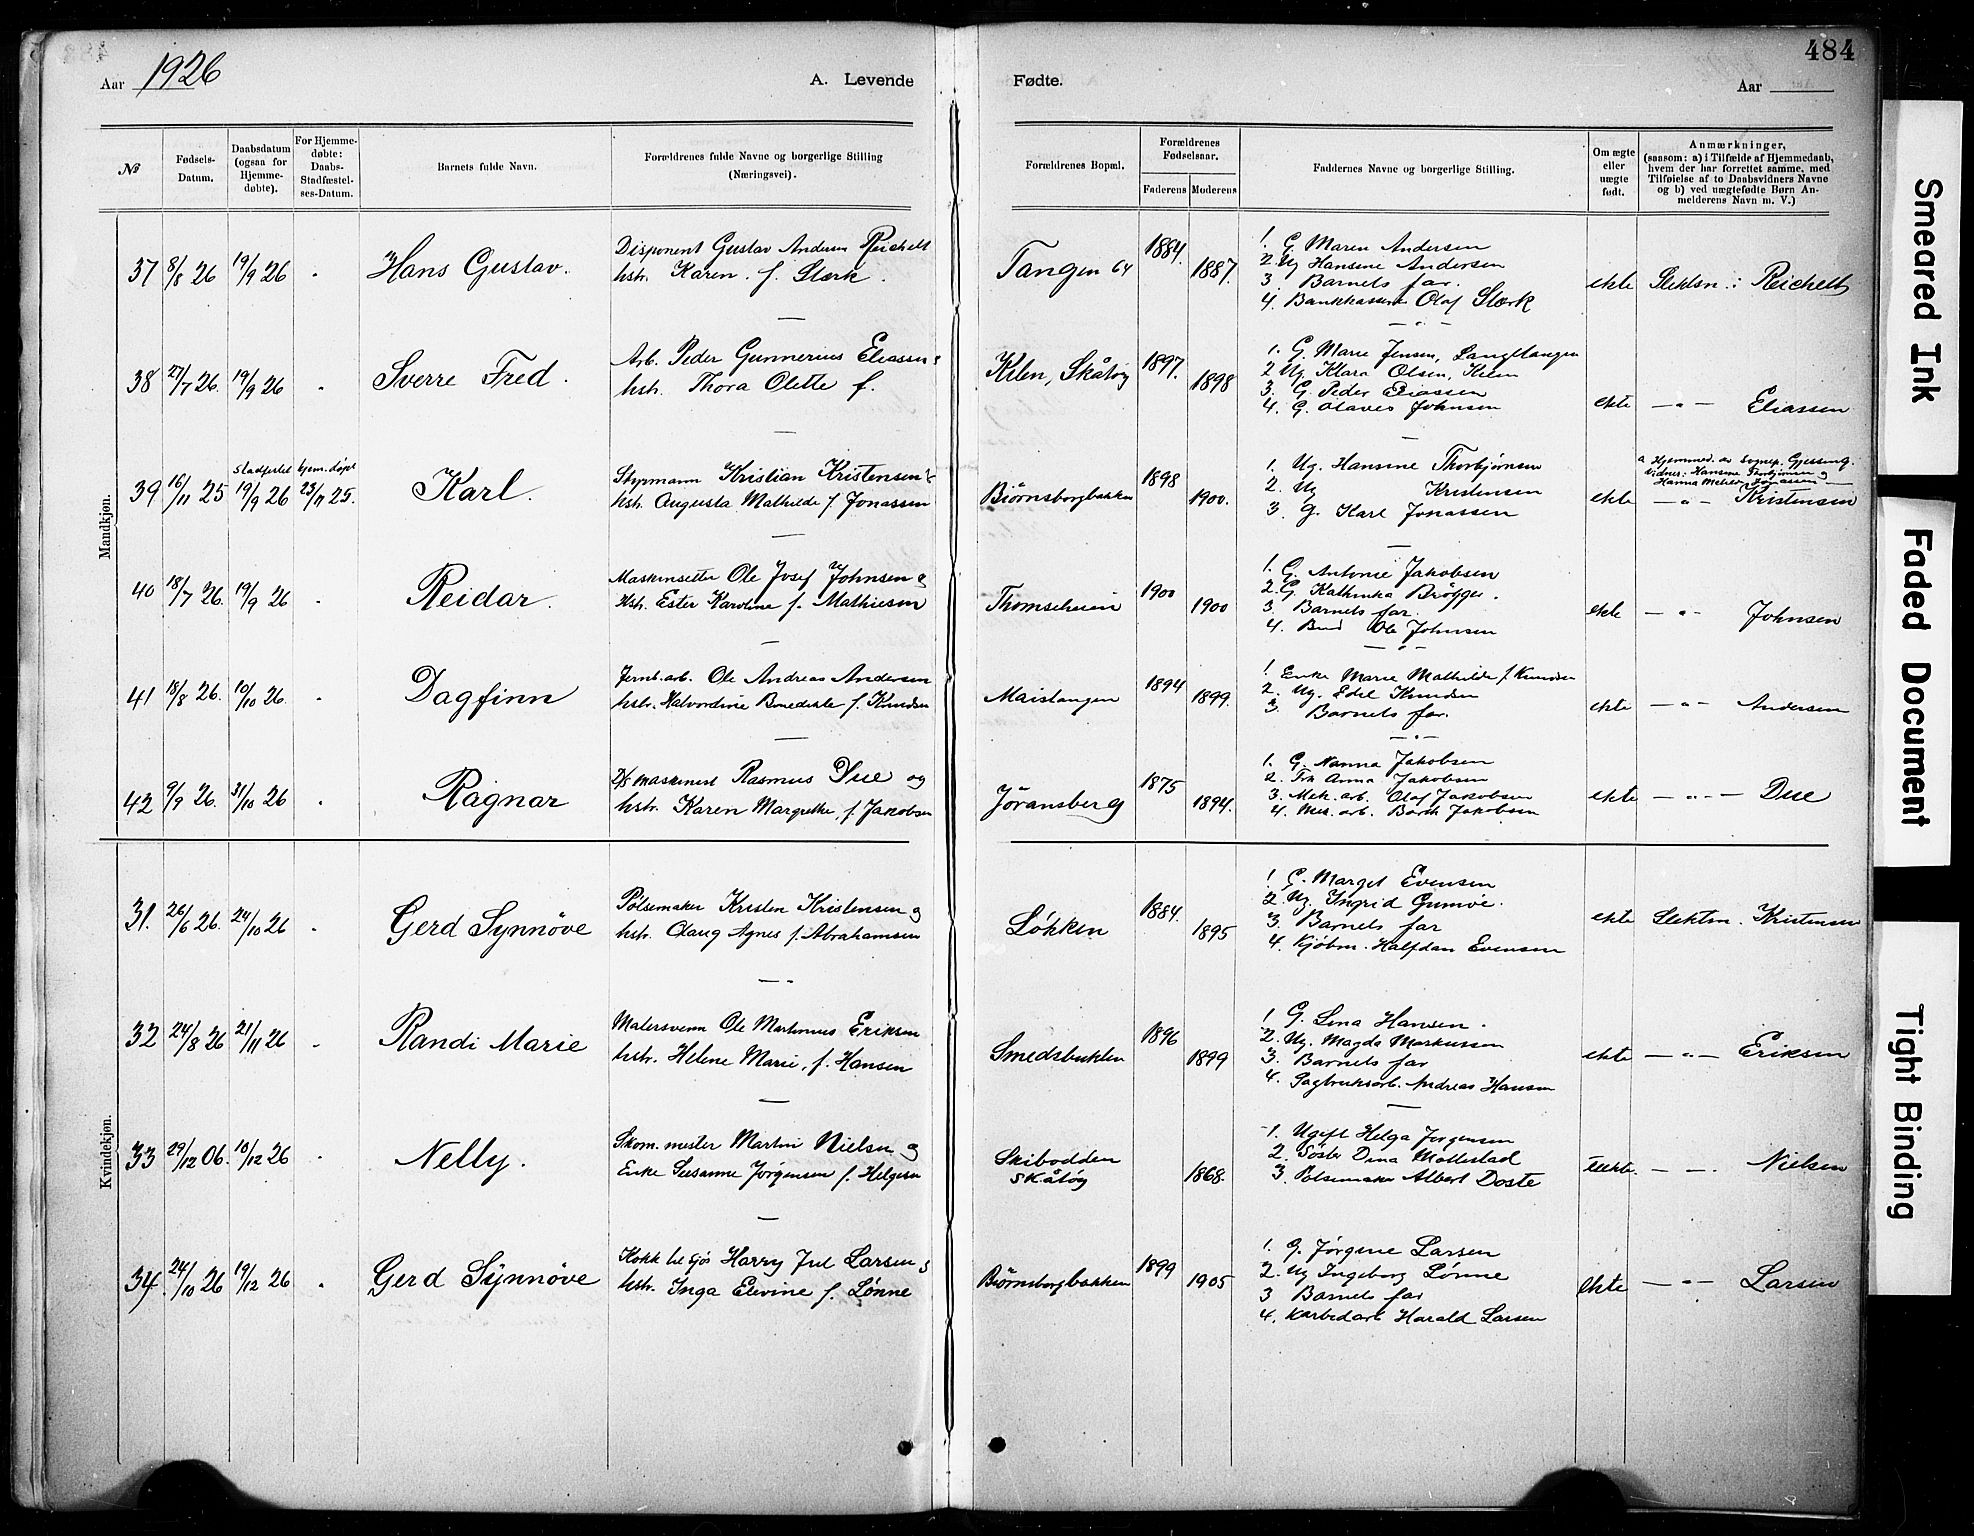 484
Aar 1926
A. Levende Fødte.
Aar
№
Fødsels-Datum.
Daabsdatum (ogsaa for Hjemmedøbte).
For Hjemmedøbte: Daabs-Stadfæstelses-Datum.
Barnets fulde Navn.
Forældrenes fulde Navne og borgerlige Stilling (Næringsvei).
Forældrenes Bopæl.
Forældrenes Fødselsaar.
Faderens Moderens
Faddernes Navne og borgerlige Stilling.
Om ægte eller uægte født.
Anmærkninger,
(saasom: a) i Tilfælde af Hjemmedaab,
hvem der har forrettet samme, med
Tilføielse af to Daabsvidners Navne
og b) ved uægtefødte Børn Anmelderens Navn m. V.)
Mandkjøn.
37 8/8 26 19/9 26 Hans Gustav.
Disponent Gustav Andersen Reichelt
hstr. Karen f. Stærk.
Tangen 64 1884. 1887.
1. G. Maren Andersen
2. Ug Hansine Andersen
3. Barnets far.
4. Bankkasserer Olaf Stærk
ekte Slektsn.: Reichelt
38 27/7 26. 19/9 26 Sverre Fred.
Arb. Peder Gunnerius Eliassen &
hstr. Thora Olette f.
Kilen, Skåtøy 1897. 1898
1. G. Marie Jensen, Langetangen
2 Ug. Klara Olsen, Kilen
3. G. Peder Eliassen
4. G. Olaves Johnsen
ekte — " — Eliassen
39 16/11 25 stadfestet 19/9 26 hjem. døpt 23/11 25. Karl.
Styrmann Kristian Kristensen &
hstr. Augusta Mathilde f. Jonassen
Biørnsborgbakken 1898 1900.
1. Ug. Hansine Thorbjørnsen
2. Ug Kristensen
3. G. Karl Jonassen
a Hjemmed. av Sognep. Gjessing.
Vidner: Hansine Thorbjørnsen og
Hanna Jonassen
ekte — " — Kristensen
40 18/7 26. 19/9 26 Reidar.
Maskinsetter Ole Josef Johnsen &
Hstr. Ester Karoline f. Mathiesen
Thomseheien 1900 1900
1. G. Antonie Jakobsen
2. G. Kathinka Brøgger.
3. Barnets far.
4. Bud Ole Johnsen
ekte — " — Johnsen
41 18/8 26. 10/10 26 Dagfinn
Jernb. arb. Ole Andreas Andersen
hstr. Halvordine Benedikte f. Knudsen
Maistangen 1894 1899.
1. Enke Marie Mathilde f. Knudsen
2. Ug. Edel Knudsen
3. Barnets far.
ekte — " — Andersen
42 9/9 26. 31/10 26 Ragnar
D/S maskinist Rasmus Due og
hstr. Karen Margrethe, f. Jakobsen
Jøransberg 1875 1894.
1. G. Nanna Jakobsen
2. Frk Anna Jakobsen
3. Mek. arb. Olaf Jakobsen
4. Mek. arb. Jakobsen
ekte — " — Due
Kvindekjøn.
31. 26/6 26. 24/10 26 Gerd Synnøve
Pølsemaker Kristen Kristensen og
hstr. Olaug Agnes f. Abrahamsen
Løkken 1884. 1895
1. G. Marget Evensen
2. Ug. Ingrid
3. Barnets far
4. Kjøbm. Halfdan Evensen
ekte Slektsn. Kristensen
32 24/8 26 21/11 26 Randi Marie
Malersvenn Ole Martinius Eriksen
hstr. Helene Marie, f. Hansen
Smedsbukten 1896 1899
1. G. Lina Hansen.
2. Ug. Magda Markussen
3. Barnets far
4. Sagbruksarb. Andreas Hansen
ekte — " — Eriksen
33 29/12 06. 10/12 26 Nelly.
Skom. mester Martin Nielsen og
Enke Susanne Jørgensen f. Helgesen
Skibodden
Skåtøy 1868.
1. Ugift Helga Jørgensen
2. Søster Dina Mollestad
3. Pølsemaker Albert Doste
Uekte. — " — Nielsen
34. 24/10 26 19/12 26 Gerd Synnøve
Kokk til sjøs Harry Jul Larsen &
hstr. Inga Elevine f. Lønne
Biørnsborgbakken 1899 1905
1. G. Jørgine Larsen
2. Ug Ingeborg Lønne
3 Barnets far
4. Harald Larsen
Ekte — " — Larsen
Smeared Ink
Faded Document
Tight Binding